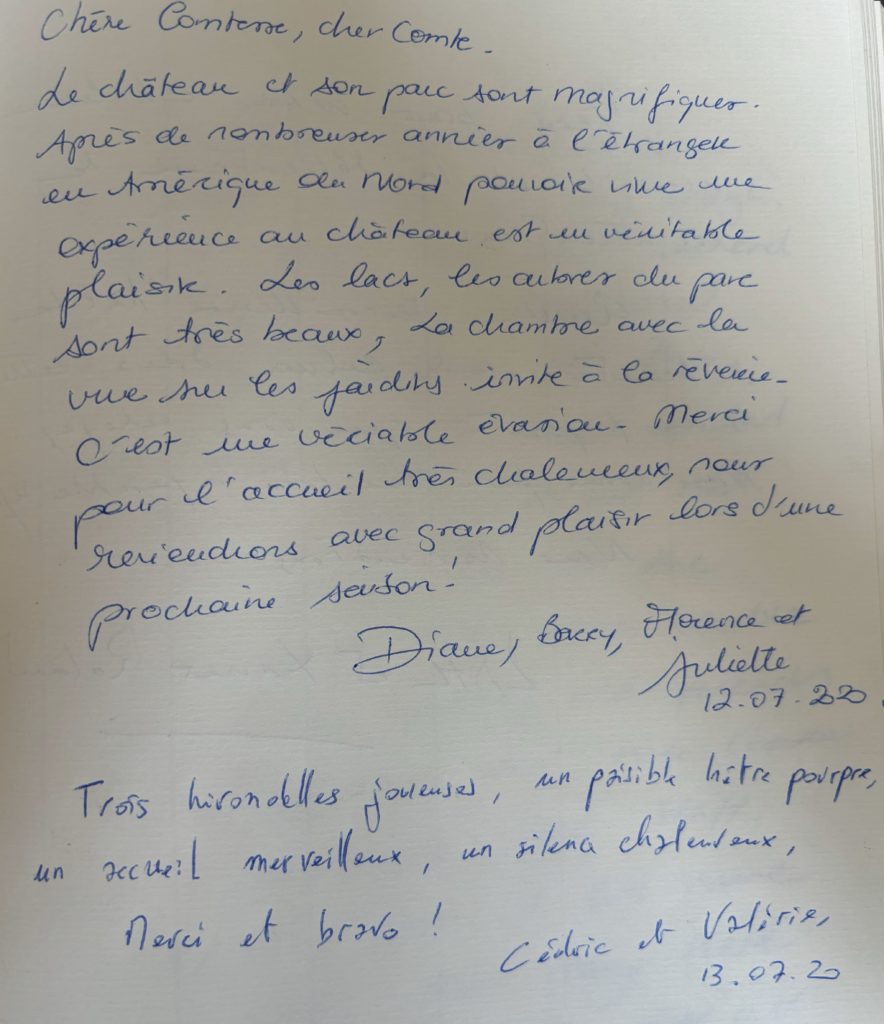 Chère Comtesse, cher Comte.
Le château et son parc sont magnifiques.
Après de nombreuses années à l'étranger
en Amérique du Nord pouvoir vivre une
expérience au château est un véritable
plaisir. Les lacs, les arbres du parc
sont très beaux, La chambre avec la
vue sur les jardins invite à la rêverie.
C'est une véritable évasion. Merci
pour l'accueil très chaleureux, nous
reviendrons avec grand plaisir lors d'une
prochaine saison!
Diane, Barry, Florence et
Juliette
12.07.2020
Trois hirondelles joyeuses, un paisible hêtre pourpre,
un accueil merveilleux, un silence chaleureux,
Merci et bravo!
Cédric et Valérie,
13.07.20